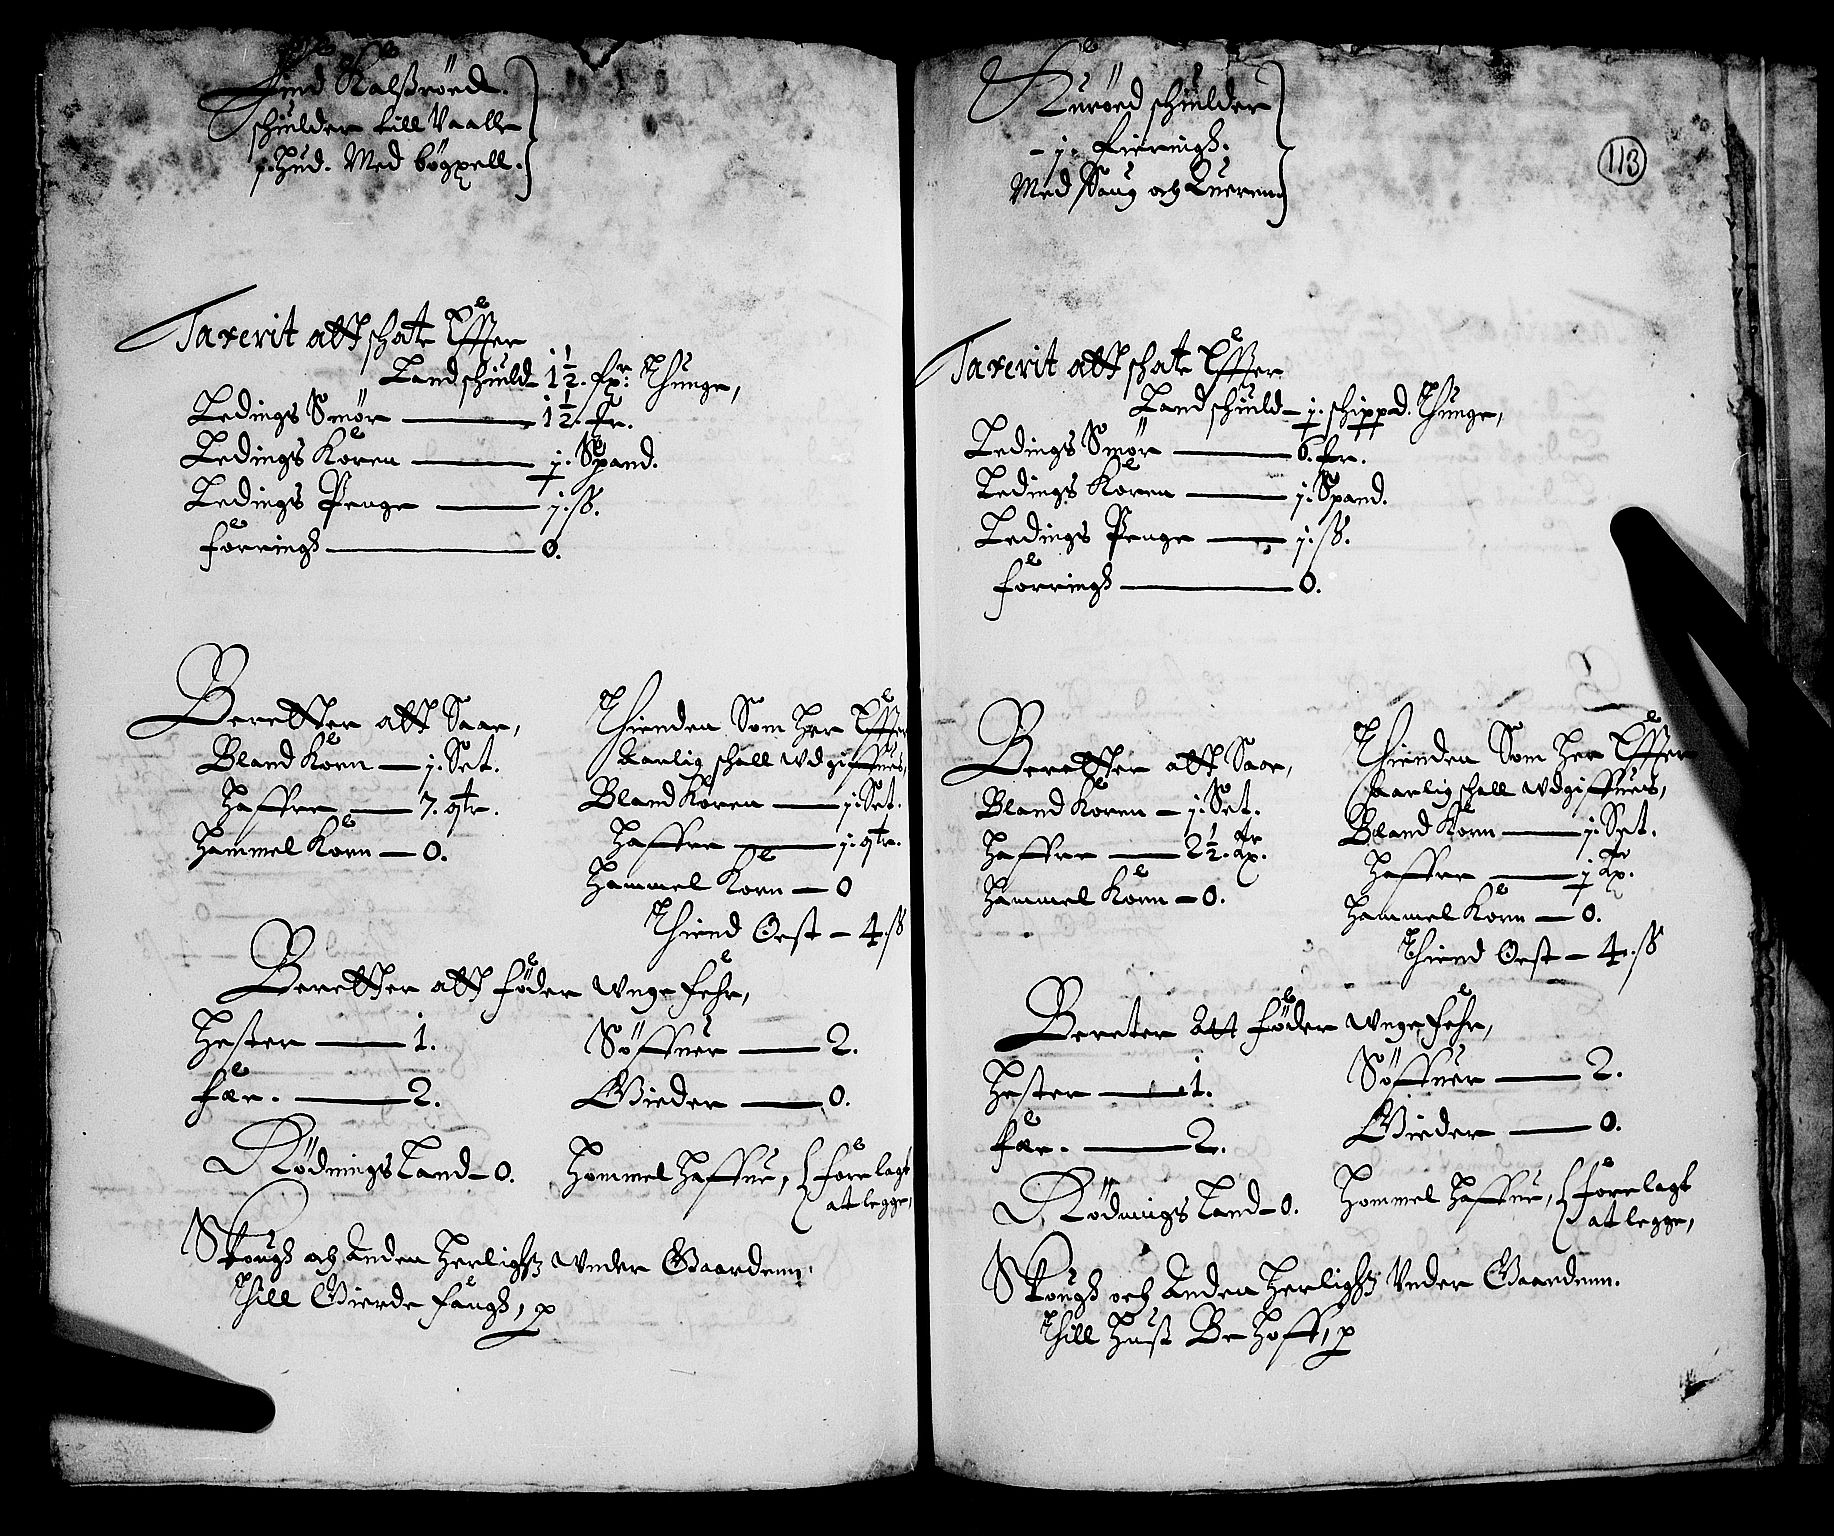 Lind Kalsröed.
schulder till Vaalle
j. Hud. Med bögxell.
Taxerit att schate Effter
Landschuld 1½. fr: Thunge,
Ledings Smör — 1½. fr.
Ledings Koren — j. Spand.
Ledings Penge — j. ß.
forringß — 0.
Beretter att Saae,
Bland Korn — j. Set.
Haffre — 7. qtr.
Hammel Korn — 0.
Thienden Som Her Effter
Aarlig schall udgiffues,
Bland Koren — j. Set.
Haffre — j. qtr.
Hammel Korn — 0
Thiend Oest — 4. ß
Beretter att föder unge fehr,
Hester — 1.
fær. — 2.
Söffuer — 2.
Gieder — 0.
Rödnings Land — 0.
Hommel Haffue, forelagt
at legge,
Skougß och Anden Herlighz under Gaardenn,
Thill Gierde fangß, p
113
Kuröed schulder
- j. Fieringß.
Med Saug och Querenn
Taxerit att schate Effter
Landschuld — j. schippd. Thunge,
Ledings Smör — 6. fr.
Ledings Koren — j. Spand.
Ledings Penge — j. ß.
forringß — 0.
Beretter att Saae,
Bland Koren — j. Set.
Haffre — 2½.
Hammel Korn — 0.
Thienden Som Her Effter
Aarlig schall udgiffues,
Bland Korn — j. Set.
Haffre — j
Hammel Korn — 0.
Thiend Oest — 4. ß
Bereter Att föder unge fehr,
Hester — 1.
fær. — 2.
Söffuer — 2.
Gieder — 0.
Rödnings Land — 0.
Hommel Haffue, forelagt
at legge,
Skougß och Anden Herlighz Under Gaardenn.
Thill Huß Be Hoff, p